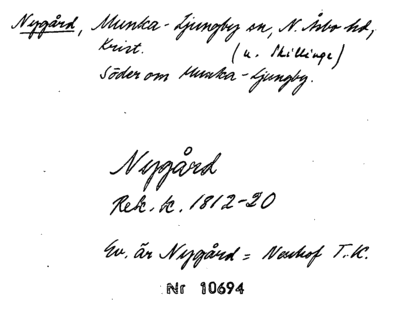 Nygård, Munka-Ljungby sn, N. Åsbo hd,
Krist. (u. Skillinge)
Söder om Munka-Ljungby.
Nygård
Rek. k. 1812-20
Ev. är Nygård = T.K.
Nr 10694